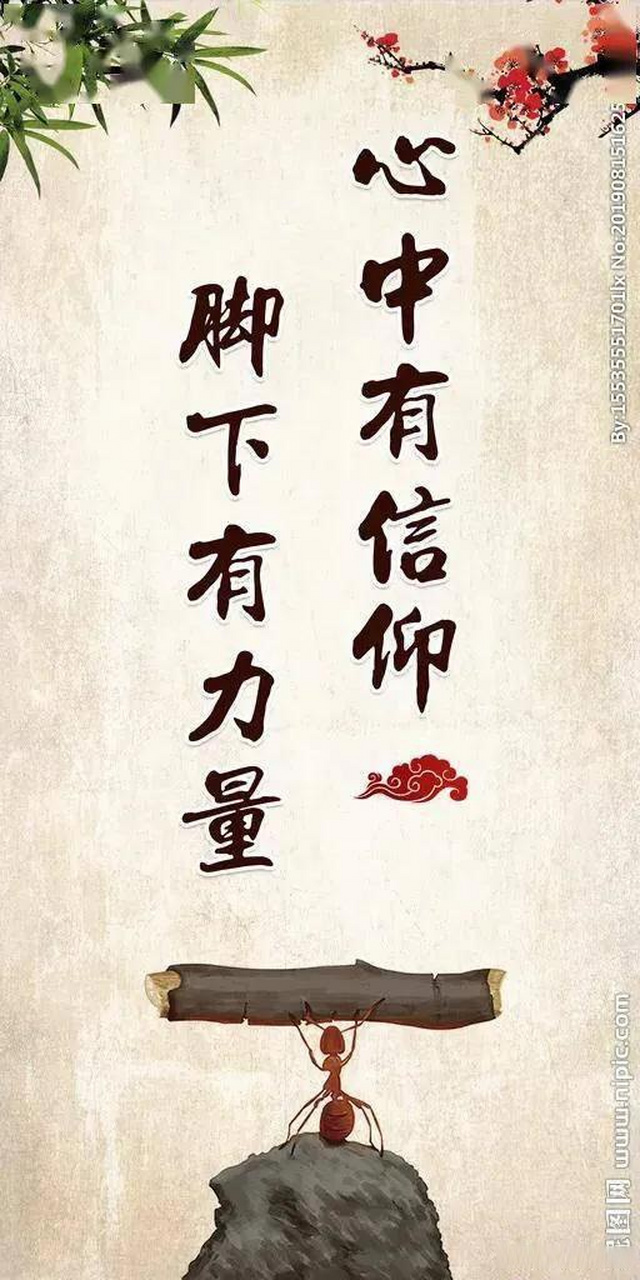 心中有信仰
脚下有力量
By:15535551701lx No:20190815162
www.nipic.com
图网